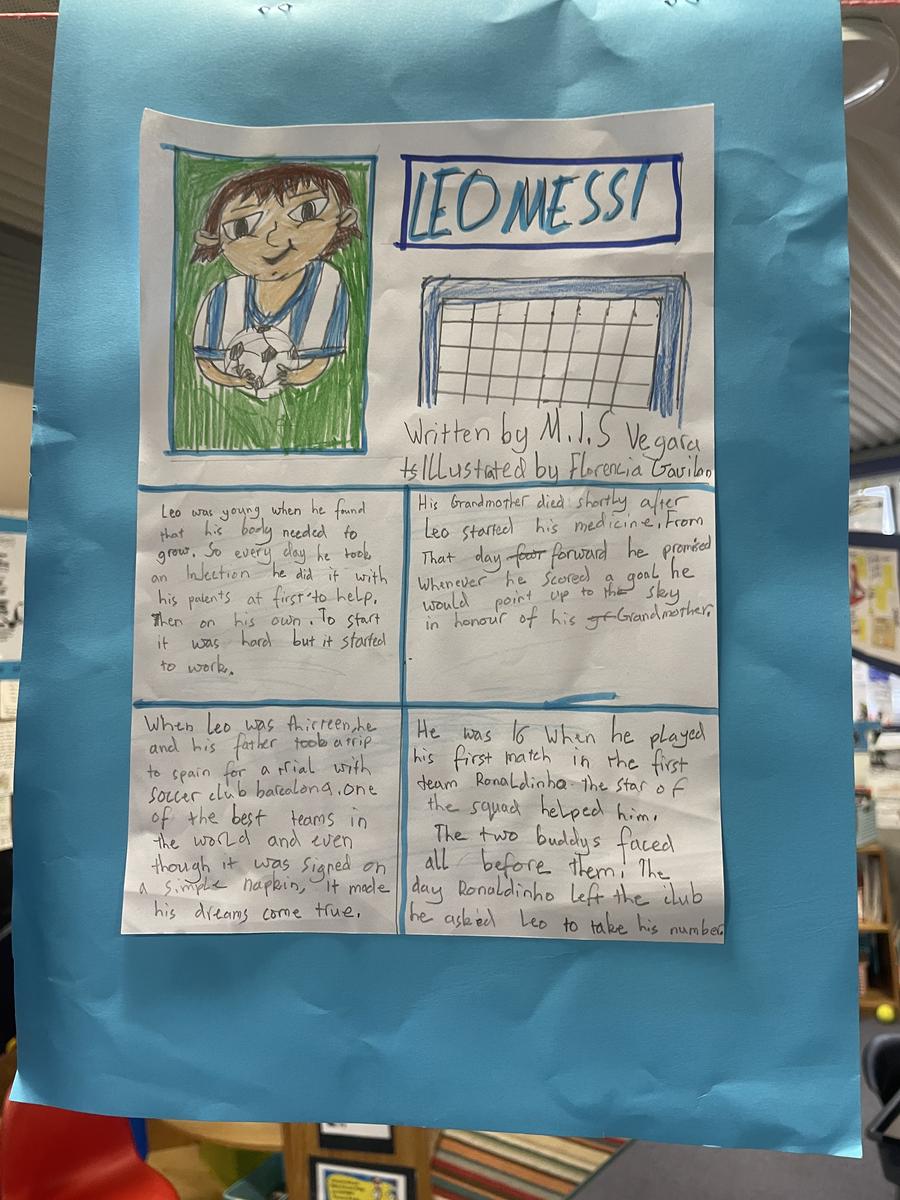 LEO MESSI
Written by M.I.S Vegara
Illustrated by Florencia Gavilan
Leo was young when he found
that his body needed to
grow. So every day he took
an Injection he did it with
his parents at first to help.
Then on his own. To start
it was hard but it started
to work.
His Grandmother died shortly after
Leo started his medicine. From
That day forward he promised
Whenever he scored a goal he
would point up to the sky
in honour of his Grandmother.
When Leo was thirreen, he
and his father took a trip
to spain for a trial with
soccer club barcalona. one
of the best teams in
the world and even
though it was signed on
a simple napkin, it made
his dreams come true.
He was 16 when he played
his first match in the first
team Ronaldinho the star of
the squad helped him.
The two buddys faced
all before them. The
day Ronaldinho left the club
he asked Leo to take his number.